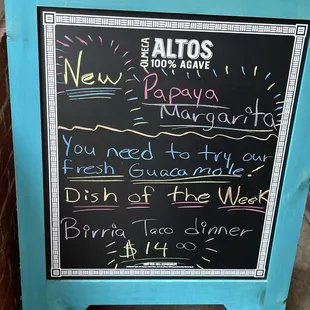 OLMECA ALTOS
100% AGAVE
New
Papaya
Margarita
You need to try our
fresh Guacamole.
Dish of the Week
Birria Taco dinner
$ 14 00